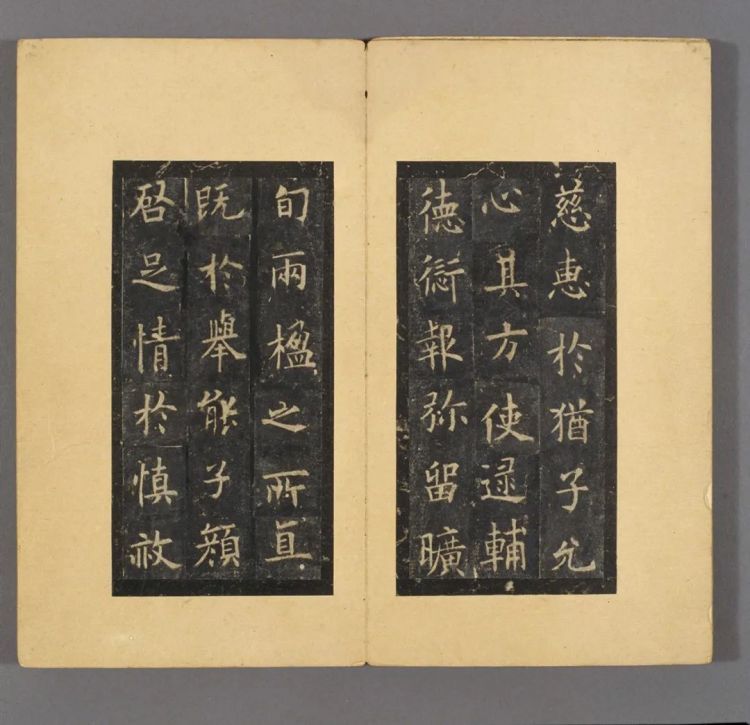 慈惠於猶子允
心其方使逯輔
德衍報弥留曠
旬兩楹之所直
既於舉能子顔
啓足情於慎赦